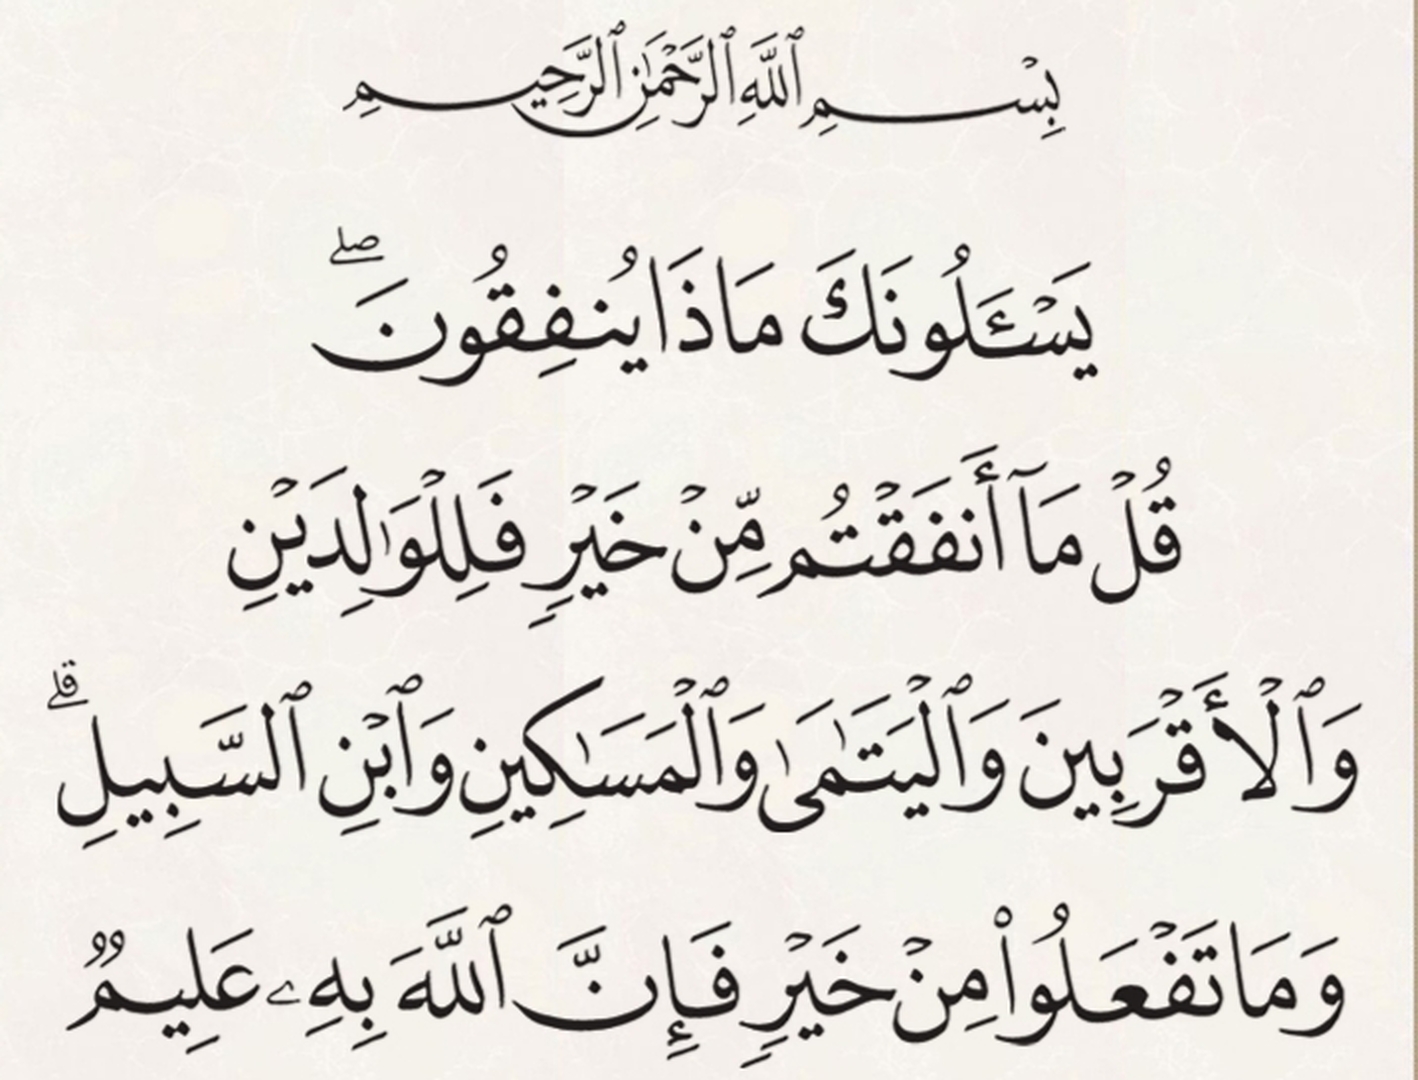 بِسْمِ ٱللَّهِ ٱلرَّحْمَٰنِ ٱلرَّحِيمِ
يَسْـَٔلُونَكَ مَاذَا يُنفِقُونَ ۖ
قُلْ مَآ أَنفَقْتُم مِّنْ خَيْرٍ فَلِلْوَٰلِدَيْنِ
وَٱلْأَقْرَبِينَ وَٱلْيَتَٰمَىٰ وَٱلْمَسَٰكِينِ وَٱبْنِ ٱلسَّبِيلِ ۗ
وَمَا تَفْعَلُوا۟ مِنْ خَيْرٍ فَإِنَّ ٱللَّهَ بِهِۦ عَلِيمٌ